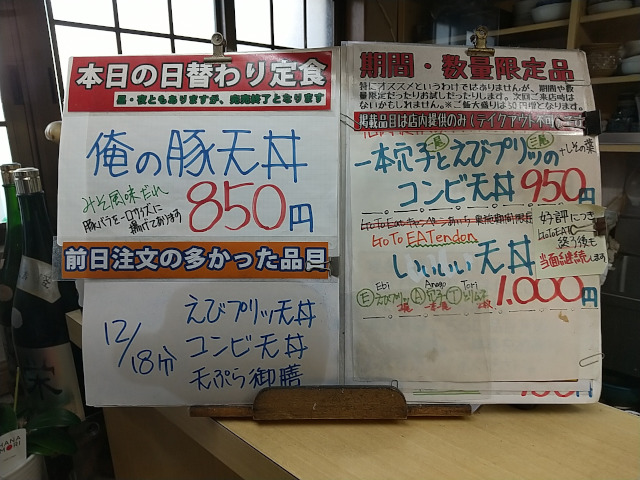 本日の日替わり定食
昼・夜ともありますが、完売終了となります
俺の豚天丼
みそ風味だれ
豚バラを一口サイズに
揚げてあります
850円
前日注文の多かった品目
12/18分
えびプリッ天丼
コンビ天丼
天ぷら御膳
期間・数量限定品
特にオススメというわけではありませんが、期間や数
量限定だったりお試しだったりします。次回ご来店時は
ないかもしれません。※ご飯大盛りは50円増となります。
掲載品目は店内提供のみ(テイクアウト不可)
一尾 三尾
一本穴子とえびプリッの
+しその葉
コンビ天丼 950円
GoTo EATendon
いいいい天丼
1,000円
好評につき
GoToEAT
終了後も
当面継続します
Ebi Anago Tori
E えびプリッ A 穴子 T
HANA
MORI